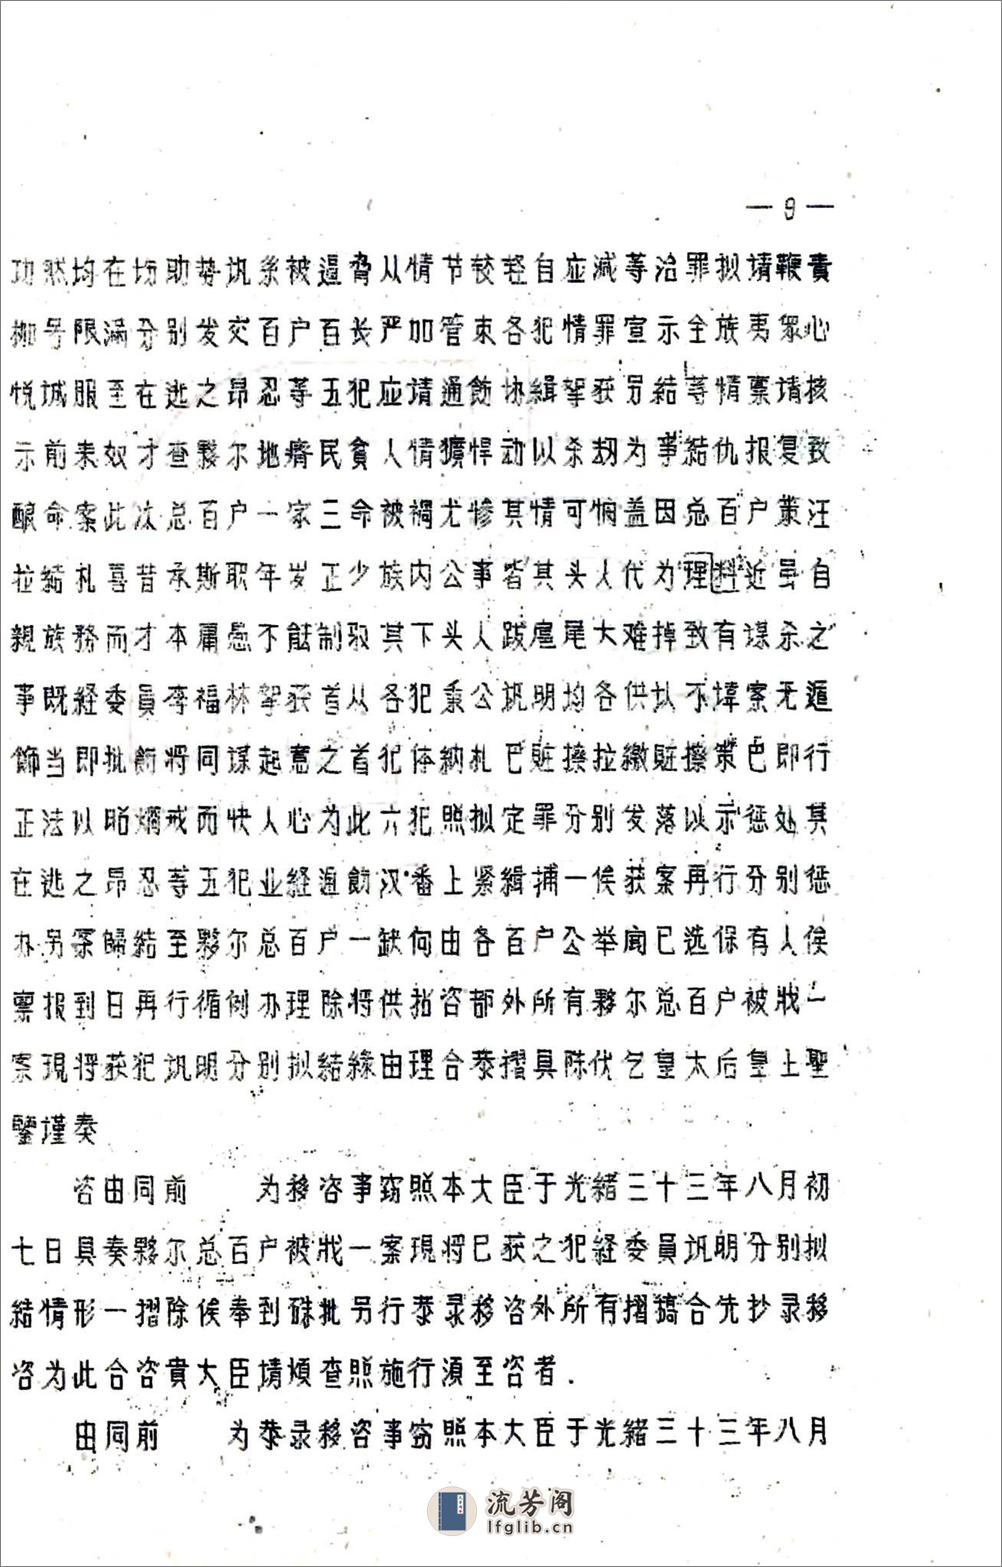 — 9 —
功然均在场助势讯系被逼脅从情节较轻自应減等治罪拟请鞭責
枷号限满分别发交百户百长严加管束各犯情罪宣示全族夷衆心
悦诚服至在逃之昂忍等五犯应请通飭协緝拏获另結等情禀请核
示前来奴才查夥尔地瘠民貧人情獷悍动以杀刼为事結仇报复致
酿命案此次总百户一家三命被禍尤惨其情可悯盖因总百户葉汪
拉結札喜昔承斯职年岁正少族内公事皆其头人代为理料近虽自
親族務而才本庸愚不能制驭其下头人跋扈尾大难掉致有谋杀之
事既経委員李福林拏获首从各犯秉公讯明均各供认不諱案无遁
飾当即批飭将同谋起意之首犯体納札巴賍擦拉繳賍擦策巴即行
正法以昭烱戒而快人心为此六犯照拟定罪分别发落以示惩处其
在逃之昂忍等五犯业経通飭汉番上紧緝捕一俟获案再行分别惩
办另案歸結至夥尔总百户一缺向由各百户公举闻已选保有人俟
禀报到日再行循例办理除将供招咨部外所有夥尔总百户被戕一
案現将获犯讯明分别拟結緣由理合恭摺具陈伏乞皇太后皇上聖
鑒谨奏
咨由同前 为移咨事窃照本大臣于光緒三十三年八月初
七日具奏夥尔总百户被戕一案現将已获之犯経委員讯明分别拟
結情形一摺除俟奉到硃批另行恭录移咨外所有摺稿合先抄录移
咨为此合咨貴大臣请煩查照施行須至咨者.
由同前 为恭录移咨事窃照本大臣于光緒三十三年八月
流芳阁
lfglib.cn